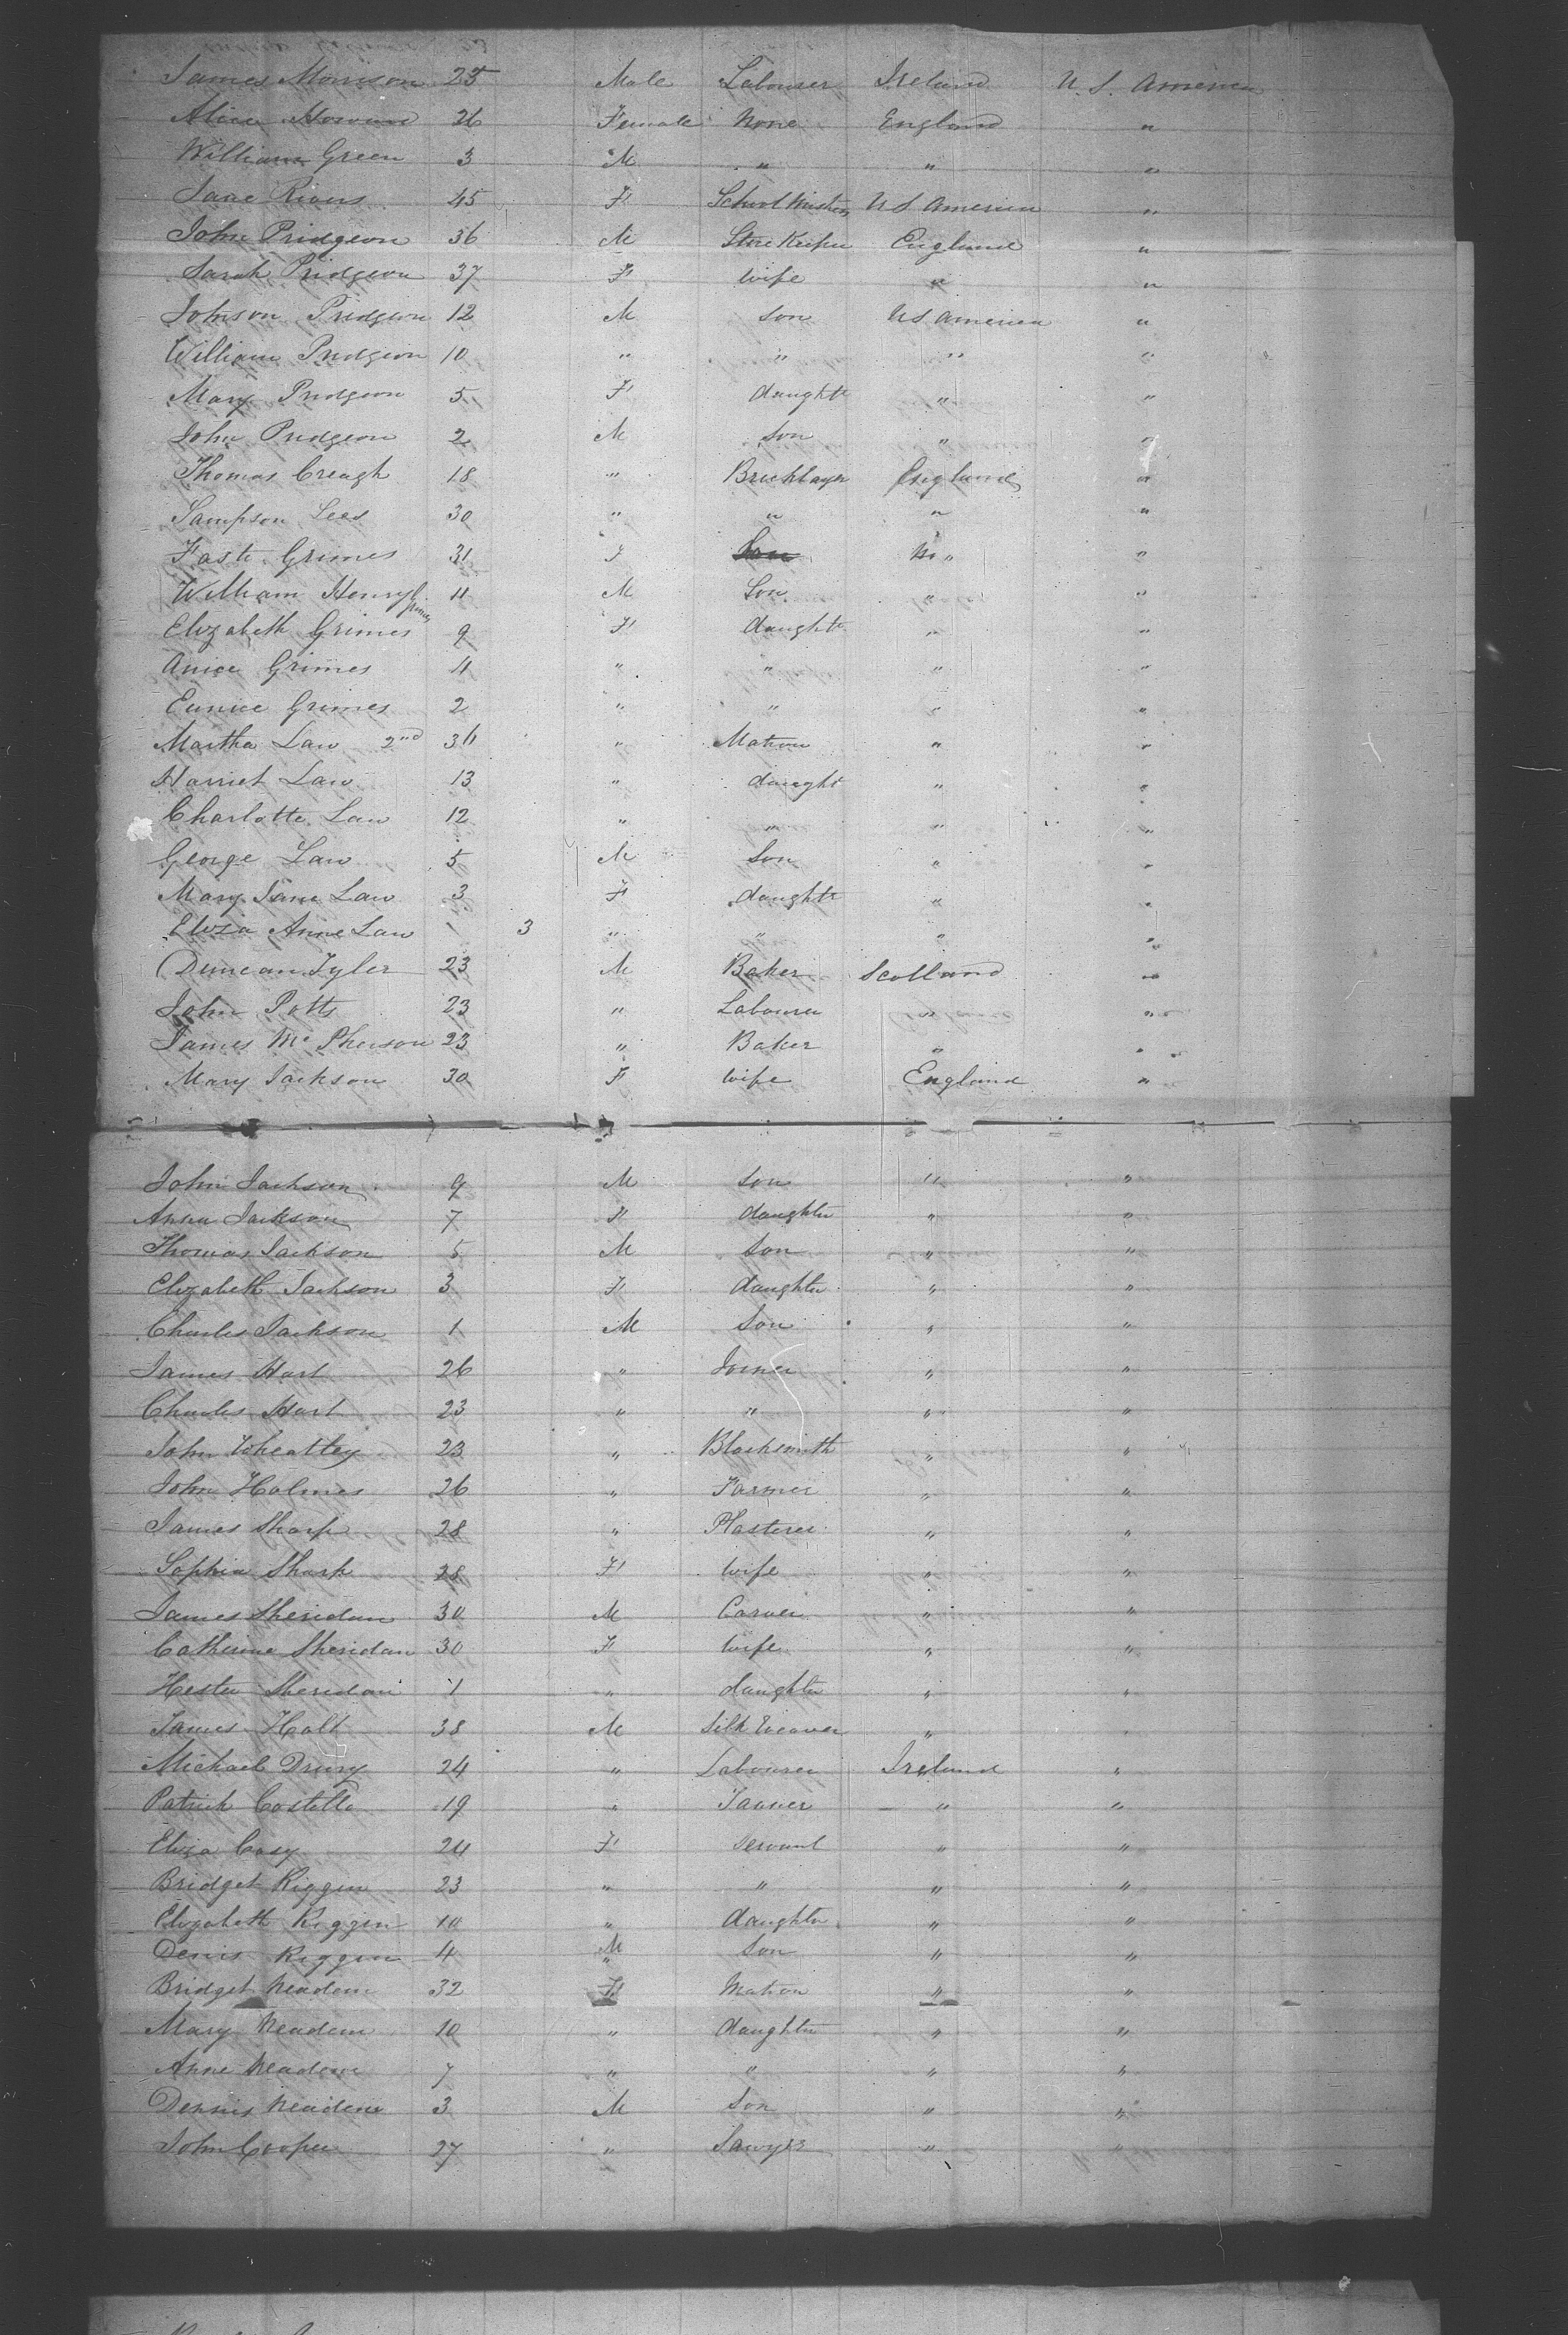 James Morrison 25 Male Labourer Ireland U. S. America
Alice Howard 26 Female None England "
William Green 3 M " " "
Jane Rivers 45 F School Mistress U S America "
John Pridgeon 36 M Store Keeper England "
Sarah Pridgeon 37 F wife " "
Johnson Pridgeon 12 M Son U S America "
William Pridgeon 10 " " " "
Mary Pridgeon 5 F daughtr " "
John Pridgeon 2 M Son " "
Thomas Creagh 18 " Bricklayer England "
Sampson Lees 30 " " " "
Grimes 31 F "
William Henry Grimes 11 M Son " "
Elizabeth Grimes 9 F daughtr " "
Anice Grimes 4 " " " "
Eunice Grimes 2 " " " "
Martha Law 2nd 34 " Matron " "
Harriet Law 13 " daught " "
Charlotte Law 12 " " " "
George Law 5 M Son " "
Mary Jane Law 3 F daughtr " "
Eliza Anne Law 3 " " " "
Duncan Tyler 23 M Baker Scotland "
John Potts 23 " Labourer " "
James McPherson 23 " Baker " "
Mary Jackson 30 F wife England "
John Jackson 9 M Son " "
Anna Jackson 7 F daughter " "
Thomas Jackson 5 M Son " "
Elizabeth Jackson 3 F daughter " "
Charles Jackson 1 M Son " "
James Hart 26 " Joiner " "
Charles Hart 23 " " " "
John Wheatley 23 " Blacksmith " "
John Holmes 26 " Farmer " "
James Sharp 28 " Plasterer " "
Sophia Sharp 28 F wife " "
James Sheridan 30 M Carver " "
Catherine Sheridan 30 F wife " "
Hester Sheridan 1 " daughter " "
James Holt 38 M Silk Weaver " "
Michael Drury 24 " Labourer Ireland "
Patrick Costello 19 " Tanner " "
Eliza Casy 24 F Servant " "
Bridget Kiggin 23 " " " "
Elizabeth Kiggin 10 " daughter " "
Denis Kiggin 4 M Son " "
Bridget 32 F Matron " "
Mary 10 " daughter " "
Anne 7 " " " "
Dennis 3 M Son " "
John Cooper 27 " Sawyer " "